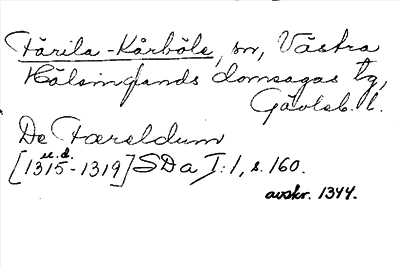 Färila-Kårböle, sn, Västra
Hälsinglands domsagas tg,
Gävleb. l.
De Færeldum
u.d.
[1315-1319] SDa I:1, s. 160.
avskr. 1344.